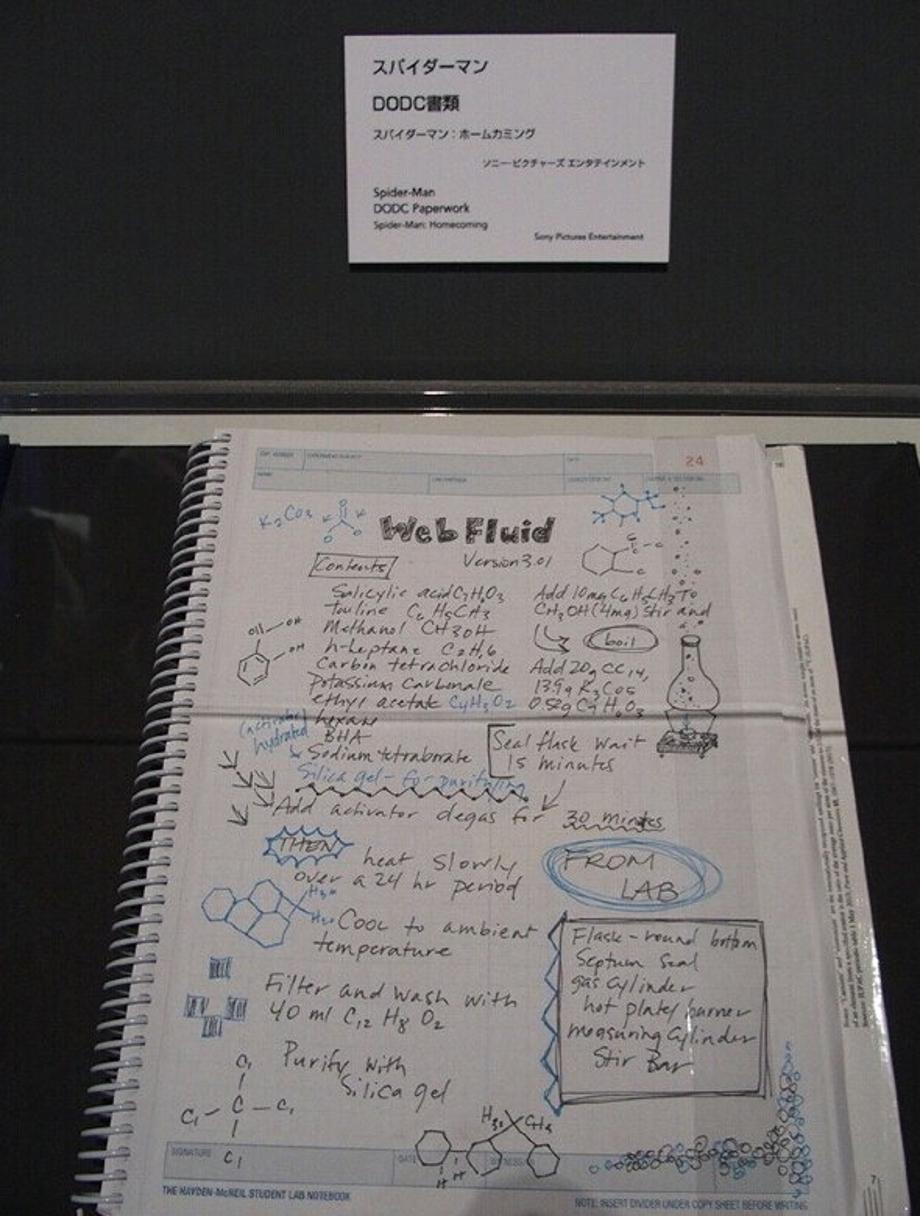 スパイダーマン
DODC書類
スパイダーマン：ホームカミング
ソニー・ピクチャーズ エンタテインメント
Spider-Man
DODC Paperwork
Spider-Man: Homecoming
Sony Pictures Entertainment
24
K2CO3
Web Fluid
Version 3.01
Contents
Salicylic acid C7H6O3
Touline C6H5CH3
Methanol CH3OH
n-heptane
Carbon tetrachloride
Potassium Carbonate
ethyl acetate C4H8O2
hexane
BHA
(activator)
hydrated
Sodium tetraborate
Silica gel - for purifying
Add 10mg C6H5CH3 To
CH3OH (4mg) Stir and
boil
Add 20g CCl4,
13.9g K2CO3
Seal flask wait
15 minutes
Add activator degas for 30 mintes
THEN
heat slowly
over a 24 hr period
FROM
LAB
Cool to ambient
temperature
Filter and Wash with
40 ml C12 H8 O2
Purify with
Silica gel
Flask-round bottom
Septum Seal
gas Cylinder
hot plate/burner
measuring Cylinder
Stir Bar
SIGNATURE
DATE
WITNESS
THE HAYDEN-McNEIL STUDENT LAB NOTEBOOK
NOTE: INSERT DIVIDER UNDER COPY SHEET BEFORE WRITING